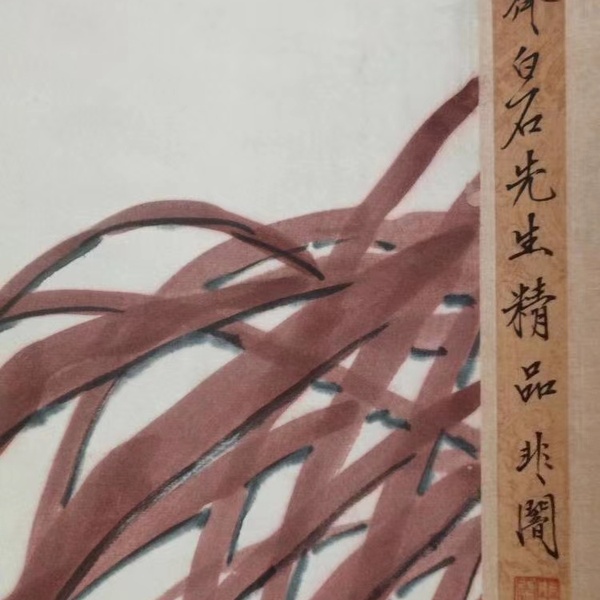 白石先生精品 非闇